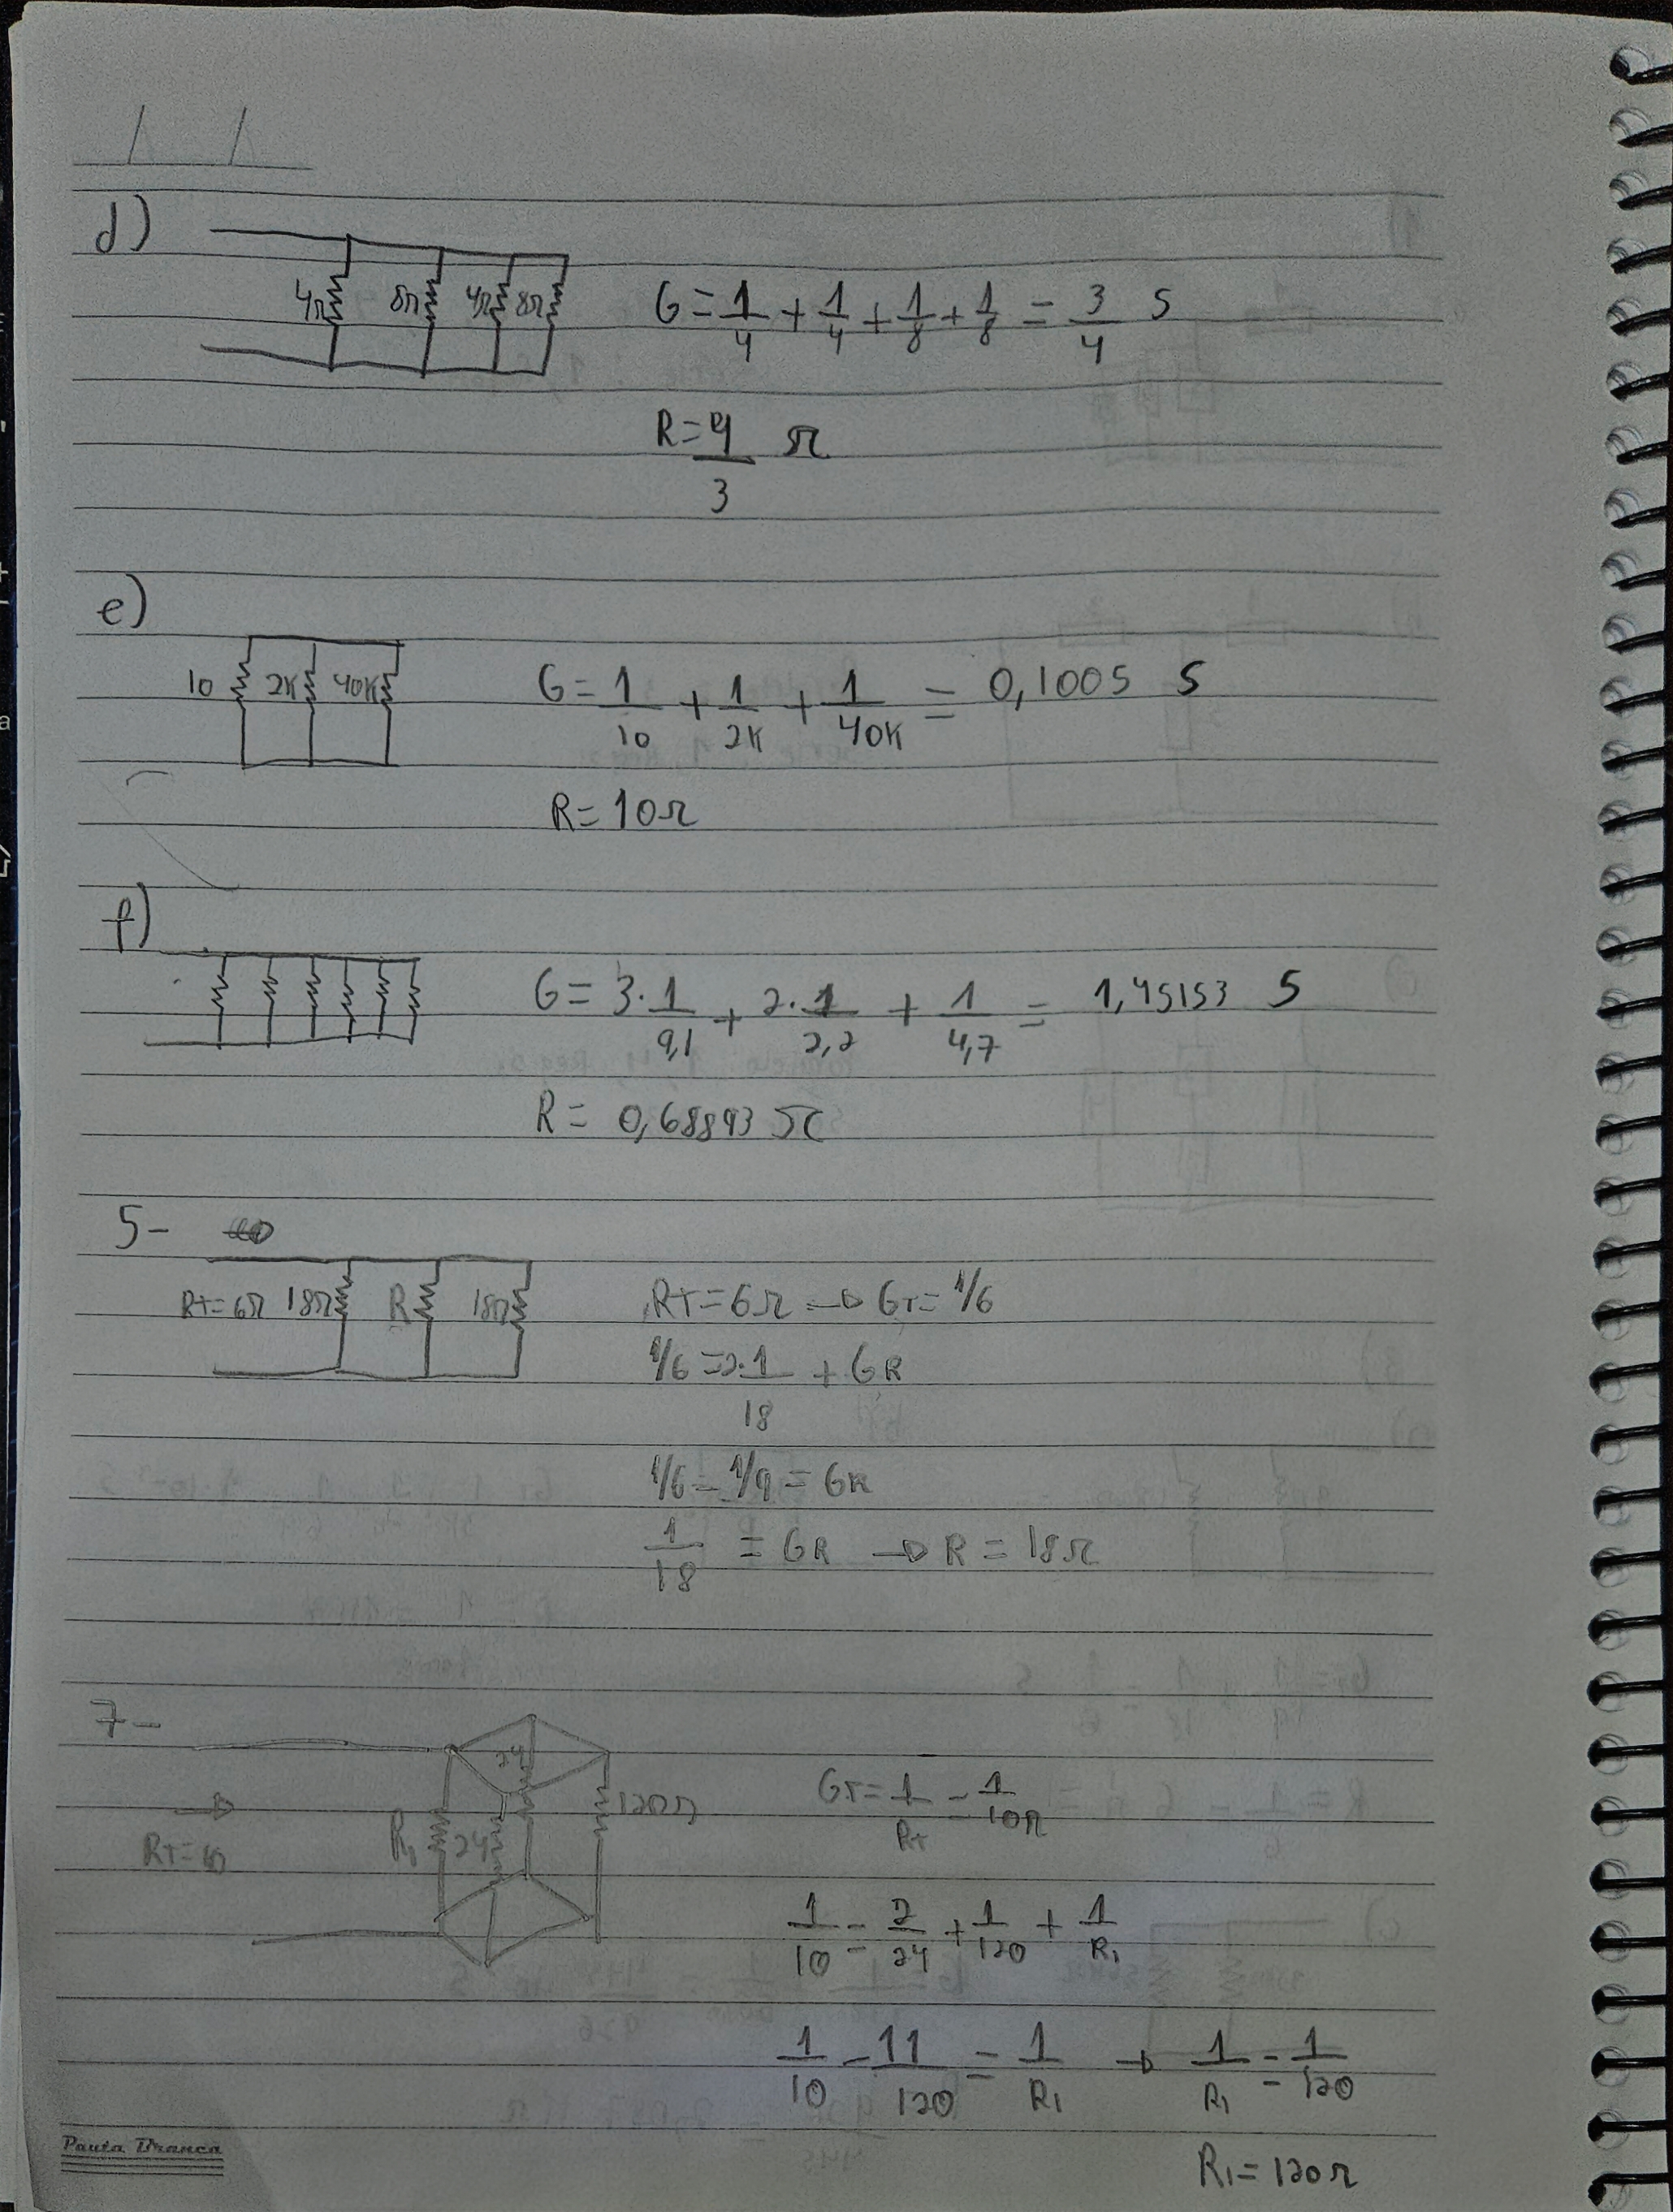 d)
4Ω 8Ω 4Ω 8Ω
G = 1/4 + 1/4 + 1/8 + 1/8 = 3/4 S
R = 4/3 Ω
e)
10 2K 40K
G = 1/10 + 1/2K + 1/40K = 0,1005 S
R = 10Ω
f)
G = 3·1/9,1 + 2·1/2,2 + 1/4,7 = 1,45153 S
R = 0,68893 Ω
5-
RT=6Ω 18Ω R 18Ω
RT=6Ω → GT=1/6
1/6 = 2·1/18 + GR
1/6 - 1/9 = GR
1/18 = GR → R = 18Ω
7-
RT=10
R1 24 24 120Ω
GT = 1/RT = 1/10Ω
1/10 = 2/24 + 1/120 + 1/R1
1/10 - 11/120 = 1/R1 → 1/R1 = 1/120
R1 = 120Ω
Pauta Branca